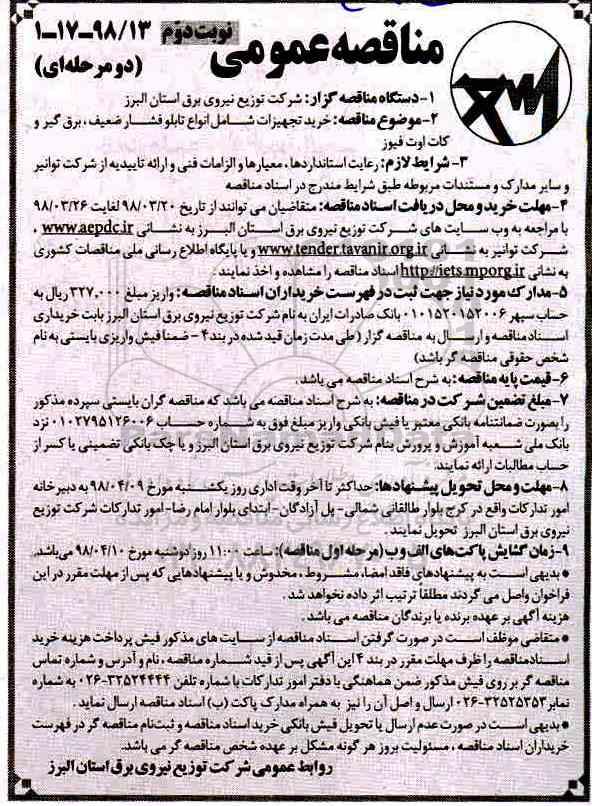 مناقصه عمومی
نوبت دوم
۹۸/۱۳-۱۷-۱
(دو مرحله‌ای)
۱-دستگاه مناقصه گزار: شرکت توزیع نیروی برق استان البرز
۲-موضوع مناقصه: خرید تجهیزات شامل انواع تابلو فشار ضعیف، برق گیر و
کات اوت فیوز
۳-شرایط لازم: رعایت استانداردها، معیارها و الزامات فنی و ارائه تاییدیه از شرکت توانیر
و سایر مدارک و مستندات مربوطه طبق شرایط مندرج در اسناد مناقصه
۴-مهلت خرید و محل دریافت اسناد مناقصه: متقاضیان می توانند از تاریخ ۹۸/۰۳/۲۰ لغایت ۹۸/۰۳/۲۶
با مراجعه به وب سایت های شرکت توزیع نیروی برق استان البرز به نشانی www.aepdc.ir ،
شرکت توانیر به نشانی www.tender.tavanir.org.ir و یا پایگاه اطلاع رسانی ملی مناقصات کشوری
به نشانی http://iets.mporg.ir اسناد مناقصه را مشاهده و اخذ نمایند.
۵-مدارک مورد نیاز جهت ثبت در فهرست خریداران اسناد مناقصه: واریز مبلغ ۳۲۷,۰۰۰ ریال به
حساب سپهر ۰۱۰۱۵۲۰۱۵۲۰۰۶ بانک صادرات ایران به نام شرکت توزیع نیروی برق استان البرز بابت خریداری
اسناد مناقصه و ارسال به مناقصه گزار (طی مدت زمان قید شده در بند ۴ - ضمنا فیش واریزی بایستی به نام
شخص حقوقی مناقصه گر باشد)
۶-قیمت پایه مناقصه: به شرح اسناد مناقصه می باشد.
۷-مبلغ تضمین شرکت در مناقصه: به شرح اسناد مناقصه می باشد که مناقصه گران بایستی سپرده مذکور
را بصورت ضمانتنامه بانکی معتبر یا فیش بانکی واریز مبلغ فوق به شماره حساب ۰۱۰۲۷۹۵۱۲۶۰۰۶ نزد
بانک ملی شعبه آموزش و پرورش بنام شرکت توزیع نیروی برق استان البرز و یا چک بانکی تضمینی یا کسر از
حساب مطالبات ارائه نمایند.
۸-مهلت و محل تحویل پیشنهادها: حداکثر تا آخر وقت اداری روز یکشنبه مورخ ۹۸/۰۴/۰۹ به دبیرخانه
امور تدارکات واقع در کرج بلوار طالقانی شمالی- پل آزادگان-ابتدای بلوار امام رضا-امور تدارکات شرکت توزیع
نیروی برق استان البرز تحویل نمایند.
۹-زمان گشایش پاکت‌های الف و ب (مرحله اول مناقصه): ساعت ۱۱:۰۰ روز دوشنبه مورخ ۹۸/۰۴/۱۰ می‌باشد.
● بدیهی است به پیشنهادهای فاقد امضاء، مشروط، مخدوش و یا پیشنهادهایی که پس از مهلت مقرر در این
فراخوان واصل می گردند مطلقا ترتیب اثر داده نخواهد شد.
هزینه آگهی بر عهده برنده یا برندگان مناقصه می باشد.
● متقاضی موظف است در صورت گرفتن اسناد مناقصه از سایت های مذکور فیش پرداخت هزینه خرید
اسناد مناقصه را ظرف مهلت مقرر در بند ۴ این آگهی پس از قید شماره مناقصه، نام و آدرس و شماره تماس
مناقصه گر بر روی فیش مذکور ضمن هماهنگی با دفتر امور تدارکات با شماره تلفن ۳۲۵۲۴۴۴۴-۰۲۶ به شماره
نمابر ۳۲۵۲۵۳۵۳-۰۲۶ ارسال و اصل آن را نیز به همراه مدارک پاکت (ب) اسناد مناقصه ارسال نماید.
● بدیهی است در صورت عدم ارسال یا تحویل فیش بانکی خرید اسناد مناقصه و ثبت‌نام مناقصه گر در فهرست
خریداران اسناد مناقصه، مسئولیت بروز هر گونه مشکل بر عهده شخص مناقصه گر می باشد.
روابط عمومی شرکت توزیع نیروی برق استان البرز